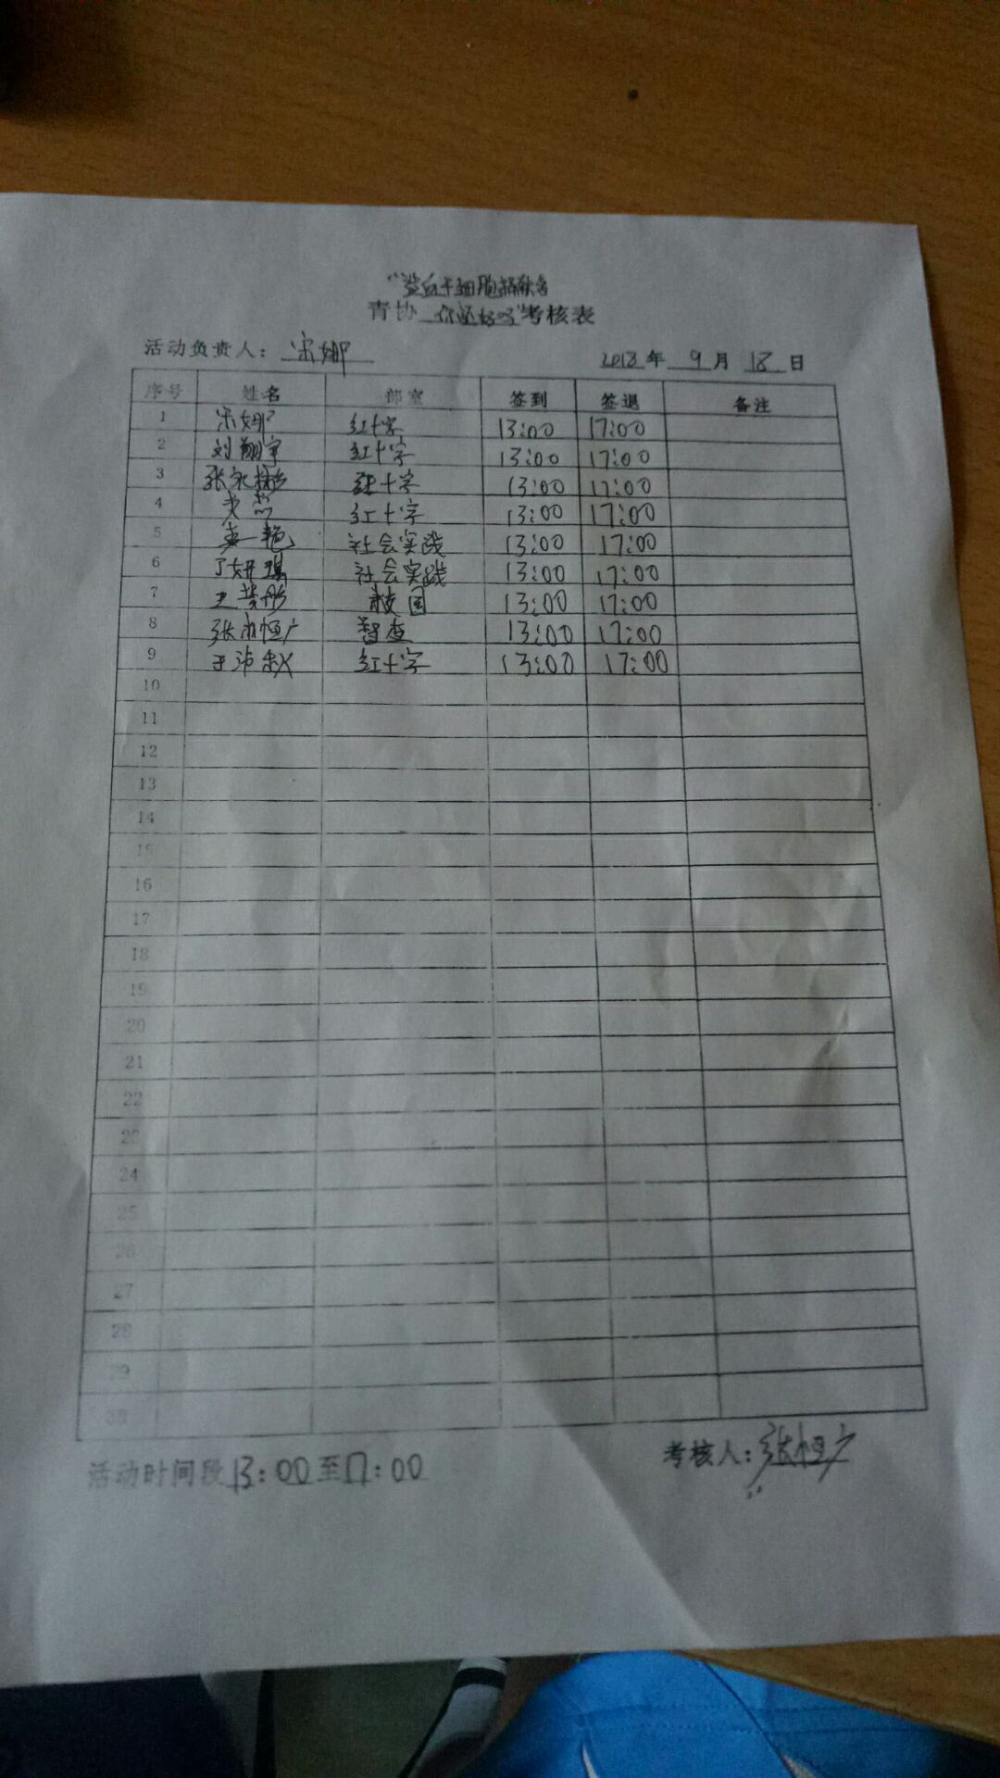 "造血干细胞捐献者
青协 你还好吗"考核表
活动负责人: 宋娜 2018年 9月 18日
序号 姓名 部室 签到 签退 备注
1 宋娜 红十字 13:00 17:00
2 刘翔宇 红十字 13:00 17:00
3 张永 红十字 13:00 17:00
4 红十字 13:00 17:00
5 艳 社会实践 13:00 17:00
6 丁妍琪 社会实践 13:00 17:00
7 王梦彤 校园 13:00 17:00
8 张恒广 督查 13:00 17:00
9 红十字 13:00 17:00
10
11
12
13
14
15
16
17
18
19
20
21
22
23
24
25
26
27
28
29
30
活动时间段 13:00至17:00 考核人: 张恒广